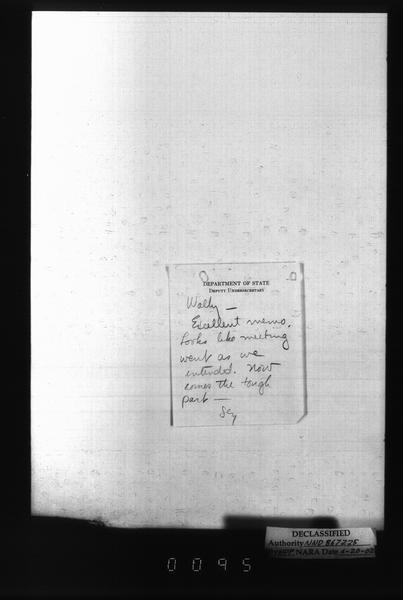 DEPARTMENT OF STATE
DEPUTY UNDERSECRETARY
Wally —
Excellent memo.
Looks like meeting
went as we
intended. Now
comes the tough
part —
DECLASSIFIED
Authority NND 867225
NARA Date
0095